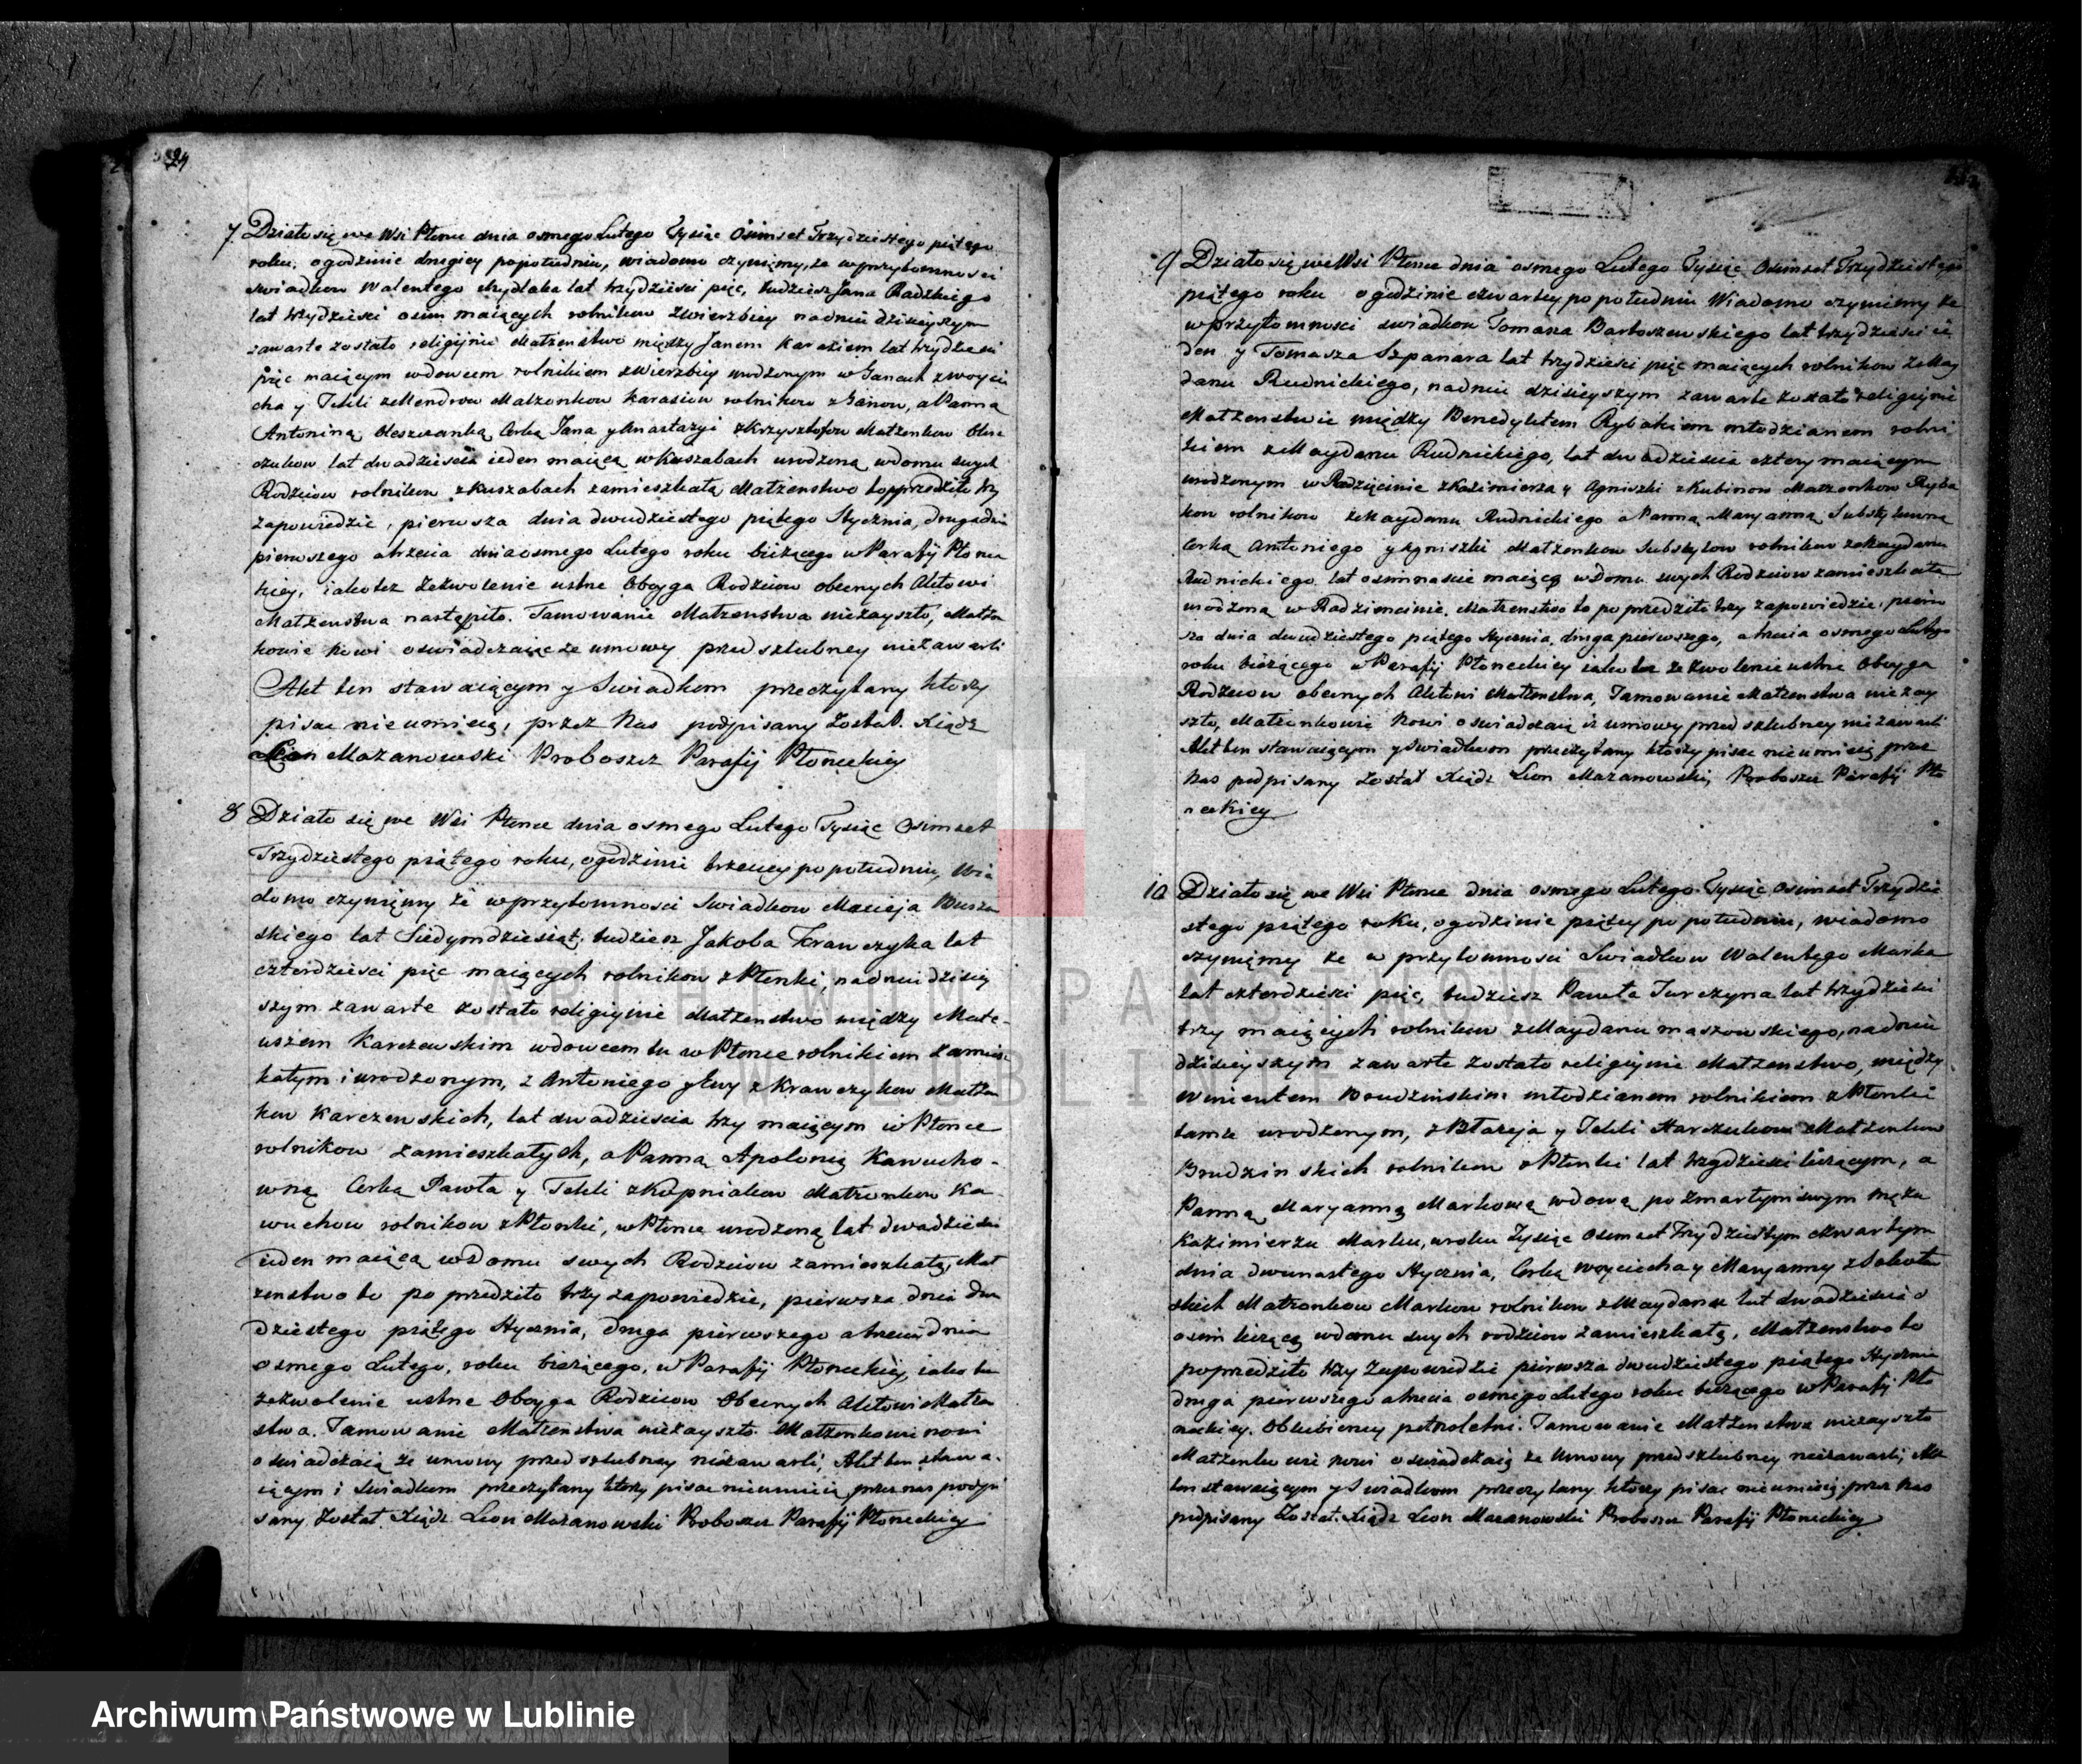 24
7. Działo się we Wsi Płonce dnia osmego Lutego Tysiąc Osimset Trzydziestego piątego
roku, o godzinie drugiey popołudniu, wiadomo czyniemy, że w przytomnosci
swiadkow Walentego lat trzydziesci pięc, tudziesz Jana Radzkiego
lat trzydzieski osim maiących rolnikow zwierzbiey na dniu dzisieyszym
zawarte zostało religijnie Małzenstwo między Janem Karasiem lat trzydziesci
pięc maiącym wdowcem rolnikiem zwierzbiey urodzonym w Ganach z woycie
cha y Tekli z Mendrow Małzonkow Karasiow rolnikow z Ganow, a Panną
Antoniną Oleszczanką Corką Jana y Anastazyi z Krzysztofow Małzenkow Olesz
czukow lat dwadziescia ieden maiącą w Kaszabach urodzoną w domu swych
Rodzicow rolnikow z Kuszabach zamieszkałą Małzenstwo to poprzedziło trzy
zapowiedzie, pierwsza dnia dwudziestego piątego Stycznia, druga dnia
pierwszego a trzecia dnia osmego Lutego roku bieżącego w Parafij Płonec
kiey, iako tez zezwolenie ustne Oboyga Rodzicow obecnych Aktowi
Małzenstwa nastąpiło. Tamowanie Małzenstwa niezayszło, Małzon
kowie nowi oswiadczaią ze umowy przedszlubney niezawarli
Akt ten stawaiącym y Swiadkom przeczytany ktorzy
pisac nie umieią, przez Nas podpisany Został. Xiądz
Leon Mazanowski Proboszcz Parafij Płoneckiey
8 Działo się we Wsi Płonce dnia osmego Lutego Tysiąc Osimset
Trzydziestego piątego roku, o godzinie trzeciey po południu, Wia
domo czyniemy że w przytomnosci Swiadkow Macieja
skiego lat Siedymdziesiąt, tudziesz Jakoba Krawczyka lat
czterdziesci pięc maiących rolnikow z Płonki, na dniu dzisiey
szym zawarte zostało religiynie Małzenstwo między Mate-
uszem Karczewskim wdowcem tu w Płonce rolnikiem zamiesz
kałym i urodzonym, z Antoniego y Ewy z Krawczykow Małzon
kow Karczewskich, lat dwadziescia trzy maiącym w Płonce
rolnikow zamieszkałych, a Panną Apolonią Kawucho-
wną Corką Pawła y Tekli z Kopniakow Małzonkow Ka-
wuchow rolnikow z Płonki, w Płonce urodzoną lat dwadziescia
ieden maiącą w domu swych Rodzicow zamieszkałą, Mał
zenstwo to poprzedziło trzy zapowiedzie, pierwsza dnia dwu
dziestego piątego Stycznia, druga pierwszego a trzecia dnia
osmego Lutego, roku bieżącego, w Parafij Płoneckiey, iako tez
zezwolenie ustne Oboyga Rodzicow Obecnych Aktowi Małzen
stwa. Tamowanie Małzenstwa niezayszło. Małzonkowie nowi
oswiadczaią ze umowy przedszlubney niezawarli, Akt ten stawa-
iącym i Swiadkom przeczytany ktorzy pisac nieumieią przez nas podpi
sany Został Xiądz Leon Mazanowski Proboszcz Parafij Płoneckiey
9 Działo się we Wsi Płonce dnia osmego Lutego Tysiąc Osimset Trzydziestego
piątego roku o godzinie czwartey po południu Wiadomo czyniemy ze
w przytomnosci swiadkow Tomasza Bartoszewskiego lat trzydziesci ie
den y Tomasza Szpanara lat trzydziesci pięc maiących rolnikow z May
danu Rudnickiego, na dniu dzisieyszym zawarte zostało religiynie
Małzenstwie między Benedyktem Rybakiem młodzianem rolni
kiem z Maydanu Rudnickiego, lat dwadziescia cztery maiącym
urodzonym w Radzięcinie z Kazimierza y Agniszki z Kubinow Małzonkow Ryba
kow rolnikow z Maydanu Rudnickiego a Panną Maryanną
Corką Antoniego y Agniszki Małzenkow rolnikow z Maydanu
Rudnickiego lat osimnascie maiącą w Domu swych Rodzicow zamieszkała
urodzoną w Małzenstwo to poprzedziło trzy zapowiedzie, pierw
sza dnia dwudziestego piątego Stycznia, druga pierwszego, a trzecia osmego Lutego
roku bieżącego w Parafij Płoneckiey iako tez zezwolenie ustne Oboyga
Rodzicow obecnych Aktowi Małzenstwa, Tamowanie Małzenstwa niezay
szło, Małzonkowie Nowi oswiadczaią iz umowy przedszlubney niezawarli
Akt ten stawaiącym y Swiadkom przeczytany ktorzy pisac nieumieią przez
Nas podpisany Został Xiądz Leon Mazanowski, Proboszcz Parafij Pło
neckiey
10 Działo się we Wsi Płonce dnia osmego Lutego Tysiąc Osimset Trzydzie
stego piątego roku, o godzinie piątey po południu, wiadomo
czyniemy ze w przytomnosci Swiadkow Walentego Marka
lat czterdzieski pięc, tudziesz Pawła Jurczyna lat trzydzieski
trzy maiących rolnikow z Maydanu maszowskiego, na dniu
dzisieyszym zawarte zostało religiynie Małzenstwo, między
Wincentem Brudzinskim młodzianem rolnikiem z Płonki
tamze urodzonym, z Błazeja y Tekli Małzenkow
Brudzinskich rolnikow z Płonki lat trzydzieski liczącym, a
Panną Maryanną Markową wdową po zmarłym swym mężu
Kazimierzu Marku, w roku Tysiąc Osimset trzydziestym czwartym
dnia dwunastego Stycznia, Corką Woyciecha y Maryanny z
skich Małzonkow Markow rolnikow z Maydanu lat dwadziescia
osim liczącą w domu swych rodzicow zamieszkałą, Małzenstwo to
poprzedziło trzy Zapowiedzie pierwsza dwudziestego piątego Stycznia
druga pierwszego a trzecia osmego Lutego roku bieżącego w Parafij Pło
neckiey. Oblubiency pełnoletni. Tamowanie Małzenstwa niezayszło
Małzenkowie nowi oswiadczaią ze Umowy przedszlubney niezawarli, Akt
ten stawaiącym y Swiadkom przeczytany ktorzy pisac nieumieią przez Nas
podpisany Został. Xiądz Leon Mazanowski Proboszcz Parafij Płoneckiey
ARCHIWUM PAŃSTWOWE
W LUBLINIE
Archiwum Państwowe w Lublinie